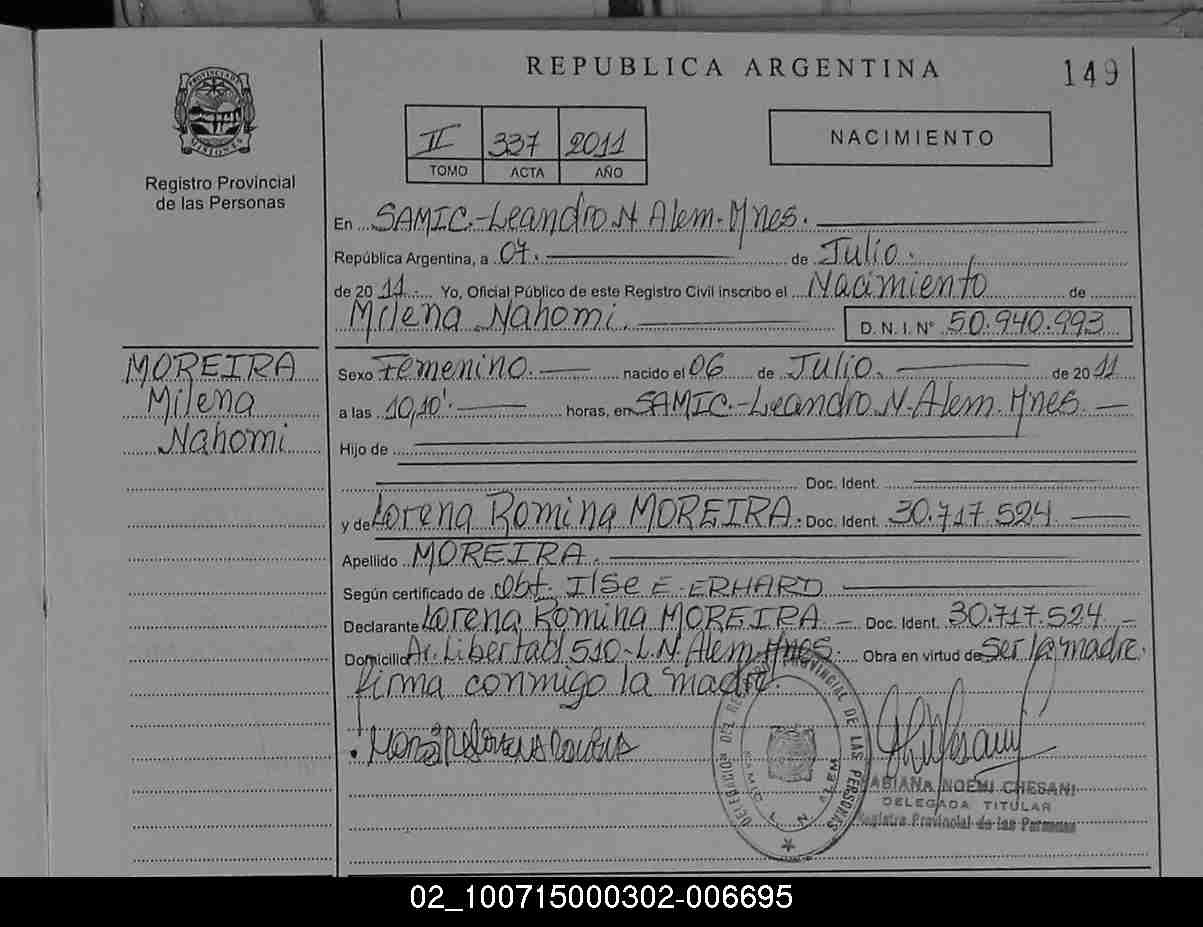 REPUBLICA ARGENTINA
149
PROVINCIA DE MISIONES
Registro Provincial
de las Personas
II 337 2011
TOMO ACTA AÑO
NACIMIENTO
En SAMIC.-Leandro N Alem-Mnes.
República Argentina, a 07. de Julio.
de 2011. Yo, Oficial Público de este Registro Civil inscribo el Nacimiento de
Milena Nahomi. D. N. I. N° 50.940.993
MOREIRA
Milena
Nahomi
Sexo Femenino. nacido el 06 de Julio. de 2011
a las 10,10'. horas, en SAMIC.-Leandro N-Alem. Mnes.
Hijo de
Doc. Ident.
y de Lorena Romina MOREIRA. Doc. Ident. 30.717.524
Apellido MOREIRA.
Según certificado de Obt. Ilse E. ERHARD
Declarante Lorena Romina MOREIRA - Doc. Ident. 30.717.524 -
Domicilio Av. Libertad 510-L.N. Alem-Mnes. Obra en virtud de Ser la madre.
firma conmigo la madre.
DELEGACION DEL REGISTRO PROVINCIAL DE LAS PERSONAS
L. N. ALEM
FABIANA NOEMI CHESANI
DELEGADA TITULAR
Registro Provincial de las Personas
02_100715000302-006695